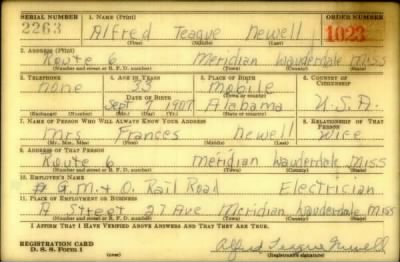 SERIAL NUMBER 1. NAME (Print) ORDER NUMBER
2263 Alfred Teague Newell 1023
(First) (Middle) (Last)
2. ADDRESS (Print)
Route 6 Meridian Lauderdale Miss
(Number and street or R. F. D. number) (Town) (County) (State)
3. TELEPHONE 4. AGE IN YEARS 5. PLACE OF BIRTH 6. COUNTRY OF CITIZENSHIP
none 33 Mobile
DATE OF BIRTH (Town or county)
Sept 7 1907 Alabama U.S.A.
(Exchange) (Number) (Mo.) (Day) (Yr.) (State or country)
7. NAME OF PERSON WHO WILL ALWAYS KNOW YOUR ADDRESS 8. RELATIONSHIP OF THAT PERSON
Mrs Frances Newell Wife
(Mr., Mrs., Miss) (First) (Middle) (Last)
9. ADDRESS OF THAT PERSON
Route 6 Meridian Lauderdale Miss
(Number and street or R. F. D. number) (Town) (County) (State)
10. EMPLOYER'S NAME
G.M.& O. Rail Road Electrician
11. PLACE OF EMPLOYMENT OR BUSINESS
A Street 27 Ave Meridian Lauderdale Miss
(Number and street or R. F. D. number) (Town) (County) (State)
I AFFIRM THAT I HAVE VERIFIED ABOVE ANSWERS AND THAT THEY ARE TRUE.
REGISTRATION CARD
D. S. S. Form 1 (over) Alfred Teague Newell
(Registrant's signature)